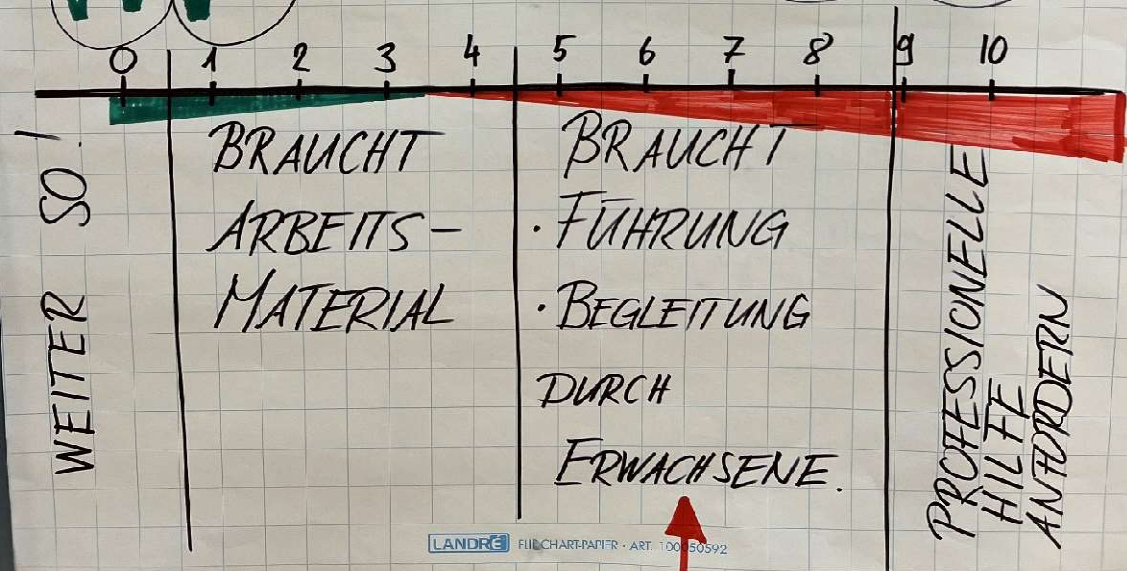 0 1 2 3 4 5 6 7 8 9 10
WEITER SO!
BRAUCHT
ARBEITS-
MATERIAL
BRAUCHT
· FÜHRUNG
· BEGLEITUNG
DURCH
ERWACHSENE.
PROFESSIONELLE
HILFE
ANFORDERN
LANDRÉ FLIPCHART-PAPIER · ART. 100050592